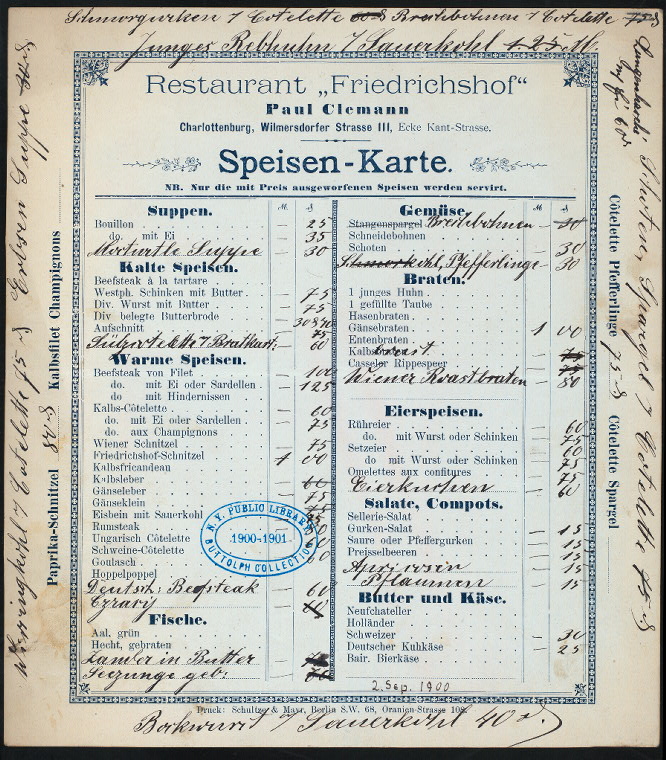 Schmorgurken & Cotelette 60 ₰ Brechbohnen & Cotelette 75 ₰
Junges Rebhuhn & Sauerkohl 1.25 M.
Restaurant „Friedrichshof“
Paul Clemann
Charlottenburg, Wilmersdorfer Strasse III, Ecke Kant-Strasse.
Speisen-Karte.
NB. Nur die mit Preis ausgeworfenen Speisen werden servirt.
M. ₰
Suppen.
Bouillon 25
do. mit Ei 35
Mocturtle Suppe 50
Kalte Speisen.
Beefsteak à la tartare
Westph. Schinken mit Butter 75
Div. Wurst mit Butter 75
Div. belegte Butterbrode
Aufschnitt 75
60
Warme Speisen.
Beefsteak von Filet 100
do. mit Ei oder Sardellen 125
do. mit Hindernissen
Kalbs-Côtelette 60
do. mit Ei oder Sardellen 75
do. aux Champignons
Wiener Schnitzel 75
Friedrichshof-Schnitzel 1 00
Kalbsfricandeau
Kalbsleber 60
Gänseleber 75
Gänseklein
Eisbein mit Sauerkohl
Rumsteak
Ungarisch Côtelette
Schweine-Côtelette
Goulasch
Hoppelpoppel
Deutsch. Beefsteak 60
Fische.
Aal, grün
Hecht, gebraten
Zander in Butter
Seezunge geb.
M. ₰
Gemüse.
Stangenspargel Brechbohnen 30
Schneidebohnen
Schoten 30
Schmorkohl, Pfefferlinge 30
Braten.
1 junges Huhn
1 gefüllte Taube
Hasenbraten
Gänsebraten 1 00
Entenbraten
Kalbsbrust 75
Casseler Rippespeer 75
Wiener Roastbraten 80
Eierspeisen.
Rühreier 60
do. mit Wurst oder Schinken 75
Setzeier 60
do mit Wurst oder Schinken 75
Omelettes aux confitures 75
Eierkuchen 60
Salate, Compots.
Sellerie-Salat
Gurken-Salat 15
Saure oder Pfeffergurken 15
Preisselbeeren 15
Apricosen 15
Pflaumen 15
Butter und Käse.
Neufchateller
Holländer
Schweizer 30
Deutscher Kuhkäse 25
Bair. Bierkäse
2. Sep. 1900
Druck: Schultze & Mayr, Berlin S.W. 68, Oranien-Strasse 108.
Bockwurst & Sauerkohl 40 ₰
Wirsingkohl & Cotelette 75 ₰ Erbsen Suppe
Paprika-Schnitzel 80 ₰ Kalbsfilet Champignons
Côtelette Pfefferlinge 75 ₰ Côtelette Spargel
Schoten, Spargel & Cotelette 75 ₰
N.Y. PUBLIC LIBRARY
1900-1901
BUTTOLPH COLLECTION